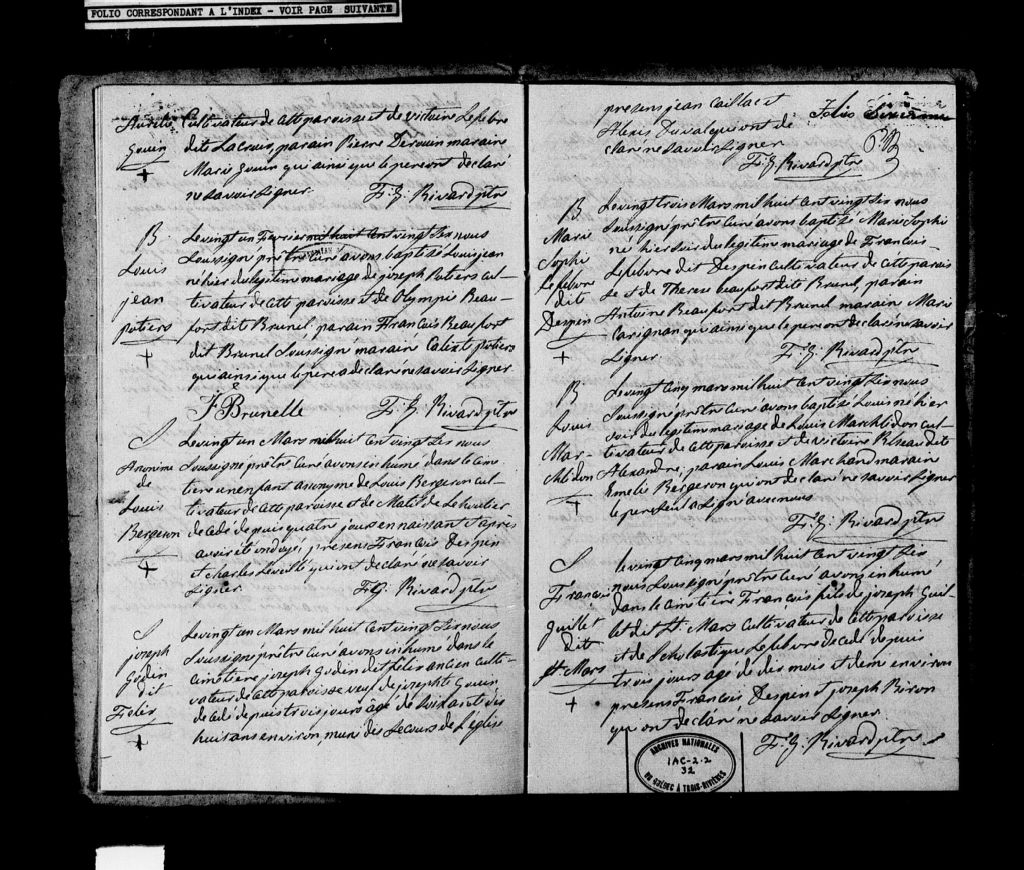 FOLIO CORRESPONDANT A L'INDEX - VOIR PAGE SUIVANTE
Aurelie
Gouin
+
Cultivateur de cette paroisse et de victoire Lefebre
dit Lacroix, parain Pierre Derouin maraine
Marie Gouin qui ainsi que le pere ont declaré
ne savoir signer. F: G: Rivard ptre
B
Louis
jean
potiers
+
Le vingt un Fevrier mil huit cent vingt six nous
soussigné prêtre curé avons baptisé Louis jean
né hier du legitime mariage de joseph Potiers cul-
tivateur de cette paroisse et de Olympie Beau-
fort dit Brunel, parain François Beaufort
dit Brunel soussigné maraine Calixte potiers
qui ainsi que le pere a declaré ne savoir signer
F Brunelle F: G: Rivard ptre
S
Anonime
de
Louis
Bergeron
+
Le vingt un Mars mil huit cent vingt six nous
soussigné prêtre curé avons inhumé dans le cime
tiere un enfant anonyme de Louis Bergeron cul-
tivateur de cette paroisse et de
decedé depuis quatre jours en naissant et après
avoir été ondoyé, presens François Despin
et charles Leveillé qui ont declaré ne savoir
signer. F: G: Rivard ptre
S
joseph
Godin
dit
Felix
+
Le vingt un Mars mil huit cent vingt six nous
soussigné prêtre curé avons inhumé dans le
cimetiere joseph Godin dit Felix ancien culti-
vateur de cette paroisse veuf de josephte Gouin
decedé depuis trois jours agé de soixante dix
huit ans environ, muni des secours de l'eglise
presens jean Caillia et
Alexis Duval qui ont de
claré ne savoir signer
F: G: Rivard ptre
Folio
B
Marie
Sophie
Lefebvre
dit
Despin
+
Le vingt trois Mars mil huit cent vingt six nous
soussigné prêtre curé avons baptisé Marie Sophie
né hier soir du legitime mariage de François
Lefebvre dit Despin cultivateur de cette parois
se et de Therese beaufort dit Brunel, parain
Antoine Beaufort dit Brunel maraine Marie
Carignan qui ainsi que le pere ont declaré ne savoir
signer F: G: Rivard ptre
B
Louis
Mar-
childon
+
Le vingt cinq mars mil huit cent vingt six nous
soussigné prêtre curé avons baptisé Louis né hier
soir du legitime mariage de Louis Marchildon cul-
tivateur de cette paroisse et de victoire Riseau dit
Alexandre, parain Louis Marchand maraine
Emelie Bergeron qui ont declaré ne savoir signer
le pere seul a signé avec nous
F: G: Rivard ptre
S
François
Guillet
dit
St. Mars
+
Le vingt cinq mars mil huit cent vingt six
nous soussigné prêtre curé avons inhumé
dans le cimetiere François fils de joseph Guil-
let dit St. Mars cultivateur de cette paroisse
et de Scholastique Lefebvre decedé depuis
trois jours agé de dix mois et demi environ
presens François Despin et joseph Biron
qui ont declaré ne savoir signer.
F: G: Rivard ptre
ARCHIVES NATIONALES
IAC-2.2
32
DU QUÉBEC À TROIS-RIVIÈRES